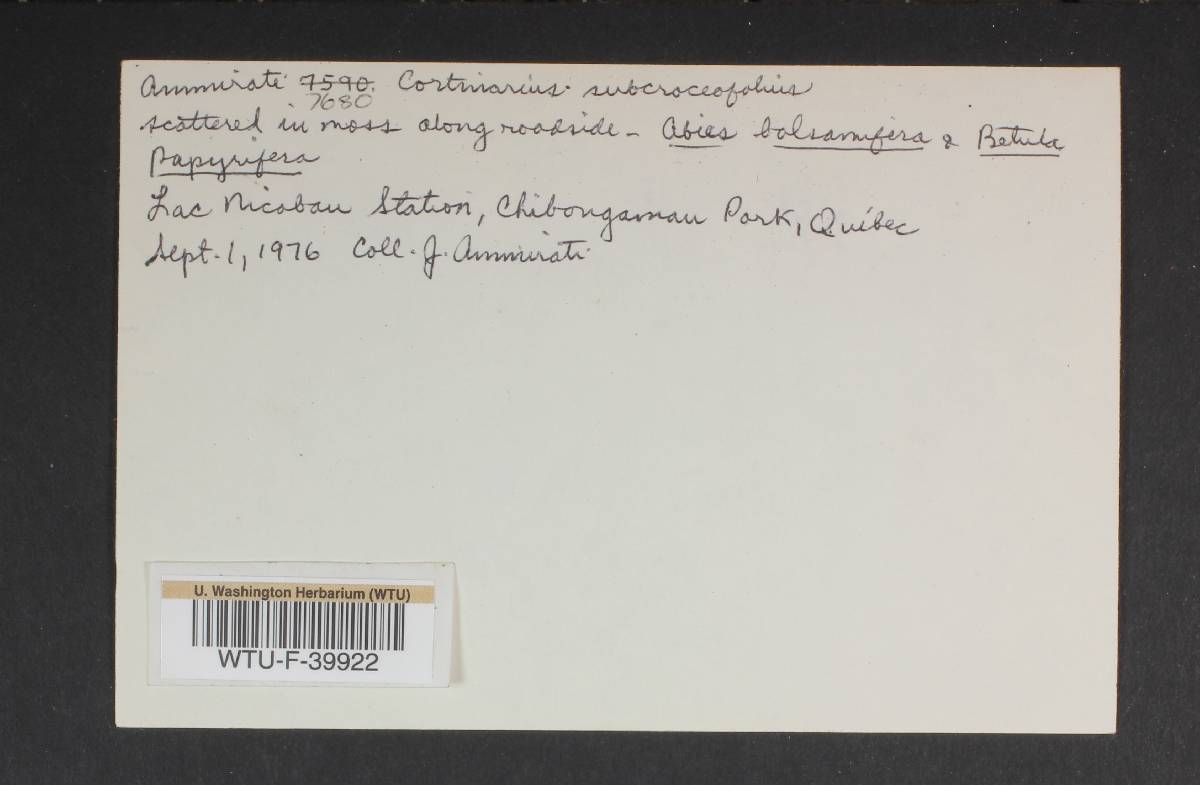 Ammirati 7590. Cortinarius subcroceofolius
7680
scattered in moss along roadside - Abies balsamifera & Betula
papyrifera
Lac Nicobau Station, Chibougamau Park, Québec
Sept. 1, 1976 Coll. J. Ammirati
U. Washington Herbarium (WTU)
WTU-F-39922